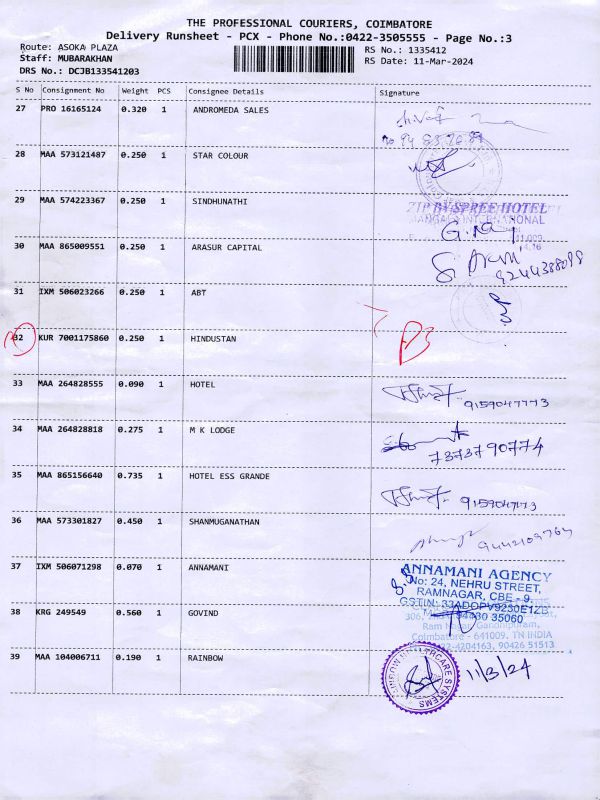 THE PROFESSIONAL COURIERS, COIMBATORE
Delivery Runsheet - PCX - Phone No.:0422-3505555 - Page No.:3
Route: ASOKA PLAZA
RS No.: 1335412
Staff: MUBARAKHAN
RS Date: 11-Mar-2024
DRS No.: DCJB133541203
S No Consignment No Weight PCS Consignee Details Signature
27 PRO 16165124 0.320 1 ANDROMEDA SALES
28 MAA 573121487 0.250 1 STAR COLOUR
29 MAA 574223367 0.250 1 SINDHUNATHI
ZIP BY SPREE HOTEL
MANGALA INTERNATIONAL
30 MAA 865009551 0.250 1 ARASUR CAPITAL
9244388098
31 IXM 506023266 0.250 1 ABT
32 KUR 7001175860 0.250 1 HINDUSTAN
33 MAA 264828555 0.090 1 HOTEL
9159047773
34 MAA 264828818 0.275 1 M K LODGE
7373790774
35 MAA 865156640 0.735 1 HOTEL ESS GRANDE
36 MAA 573301827 0.450 1 SHANMUGANATHAN
37 IXM 506071298 0.070 1 ANNAMANI
ANNAMANI AGENCY
No: 24, NEHRU STREET,
RAMNAGAR, CBE - 9.
GSTIN: 33ADOPV9230E1ZB
38 KRG 249549 0.560 1 GOVIND
35060
Coimbatore - 641009. TN INDIA
90426 51513
39 MAA 104006711 0.190 1 RAINBOW
11/3/24